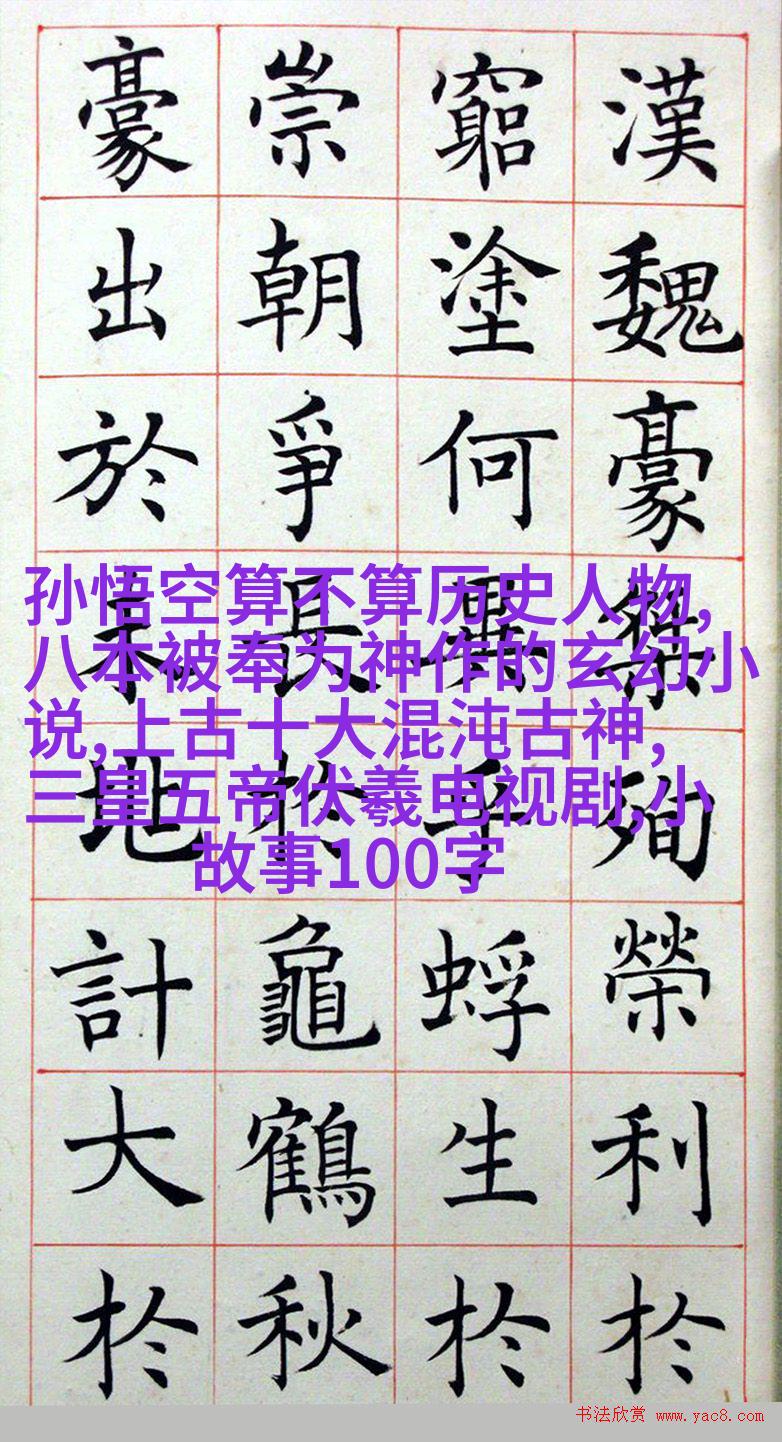 漢魏豪殉榮利扵
窮塗何異乎蜉生扵
崇朝爭長扵龜鶴秋
豪出於地計大扵
孙悟空算不算历史人物,
八本被奉为神作的玄幻小
说,上古十大混沌古神,
三皇五帝伏羲电视剧,小
故事100字
书法欣赏 www.yac8.com